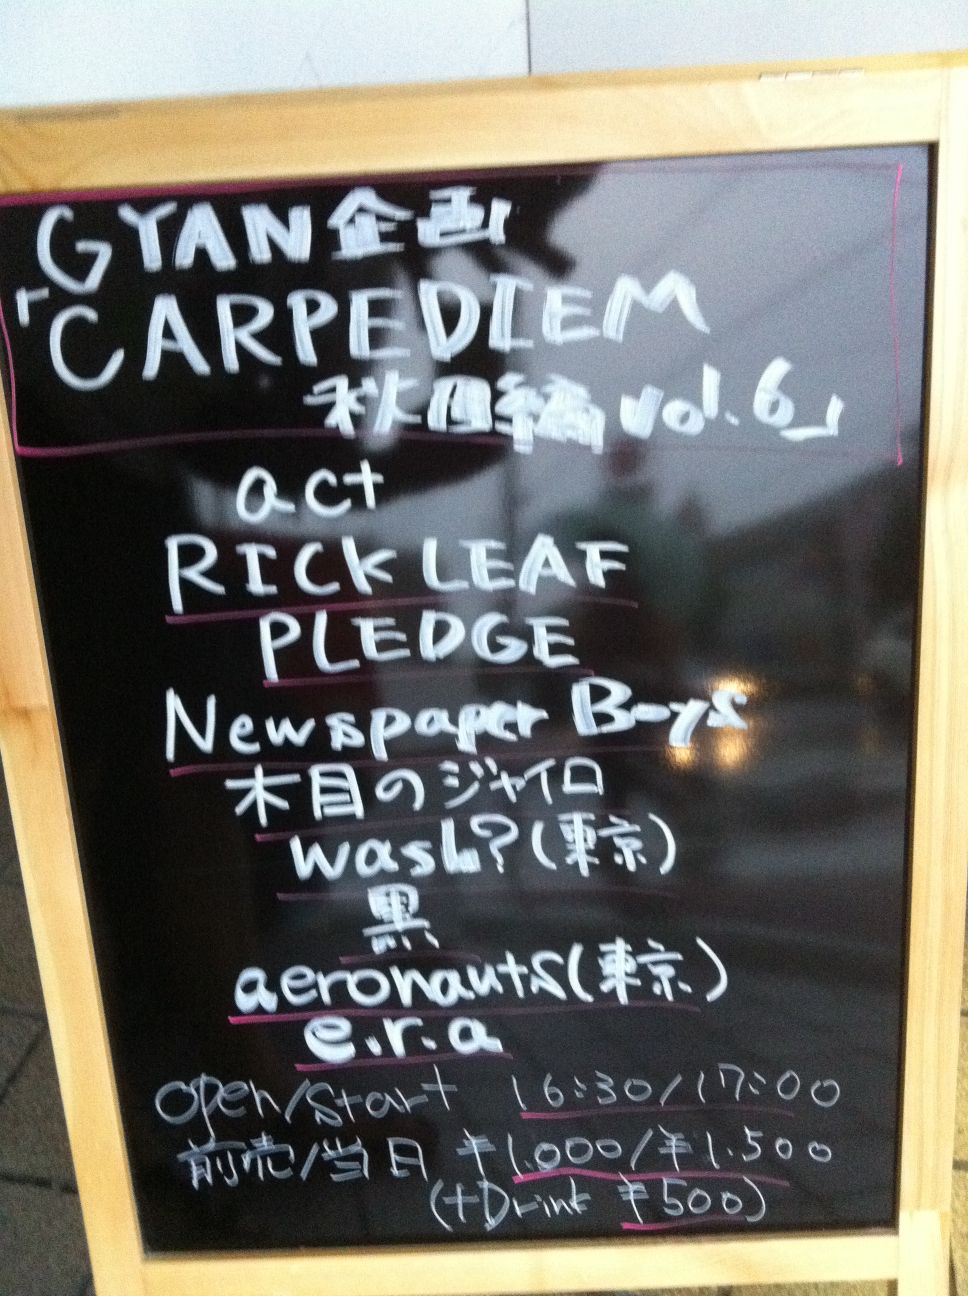 GYAN企画
「CARPEDIEM
秋田編 vol.6」
act
RICK LEAF
PLEDGE
Newspaper Boys
木目のジャイロ
wash?(東京)
黒
aeronauts(東京)
e.r.a
open/start 16:30/17:00
前売/当日 ¥1.000/¥1.500
(+Drink ¥500)